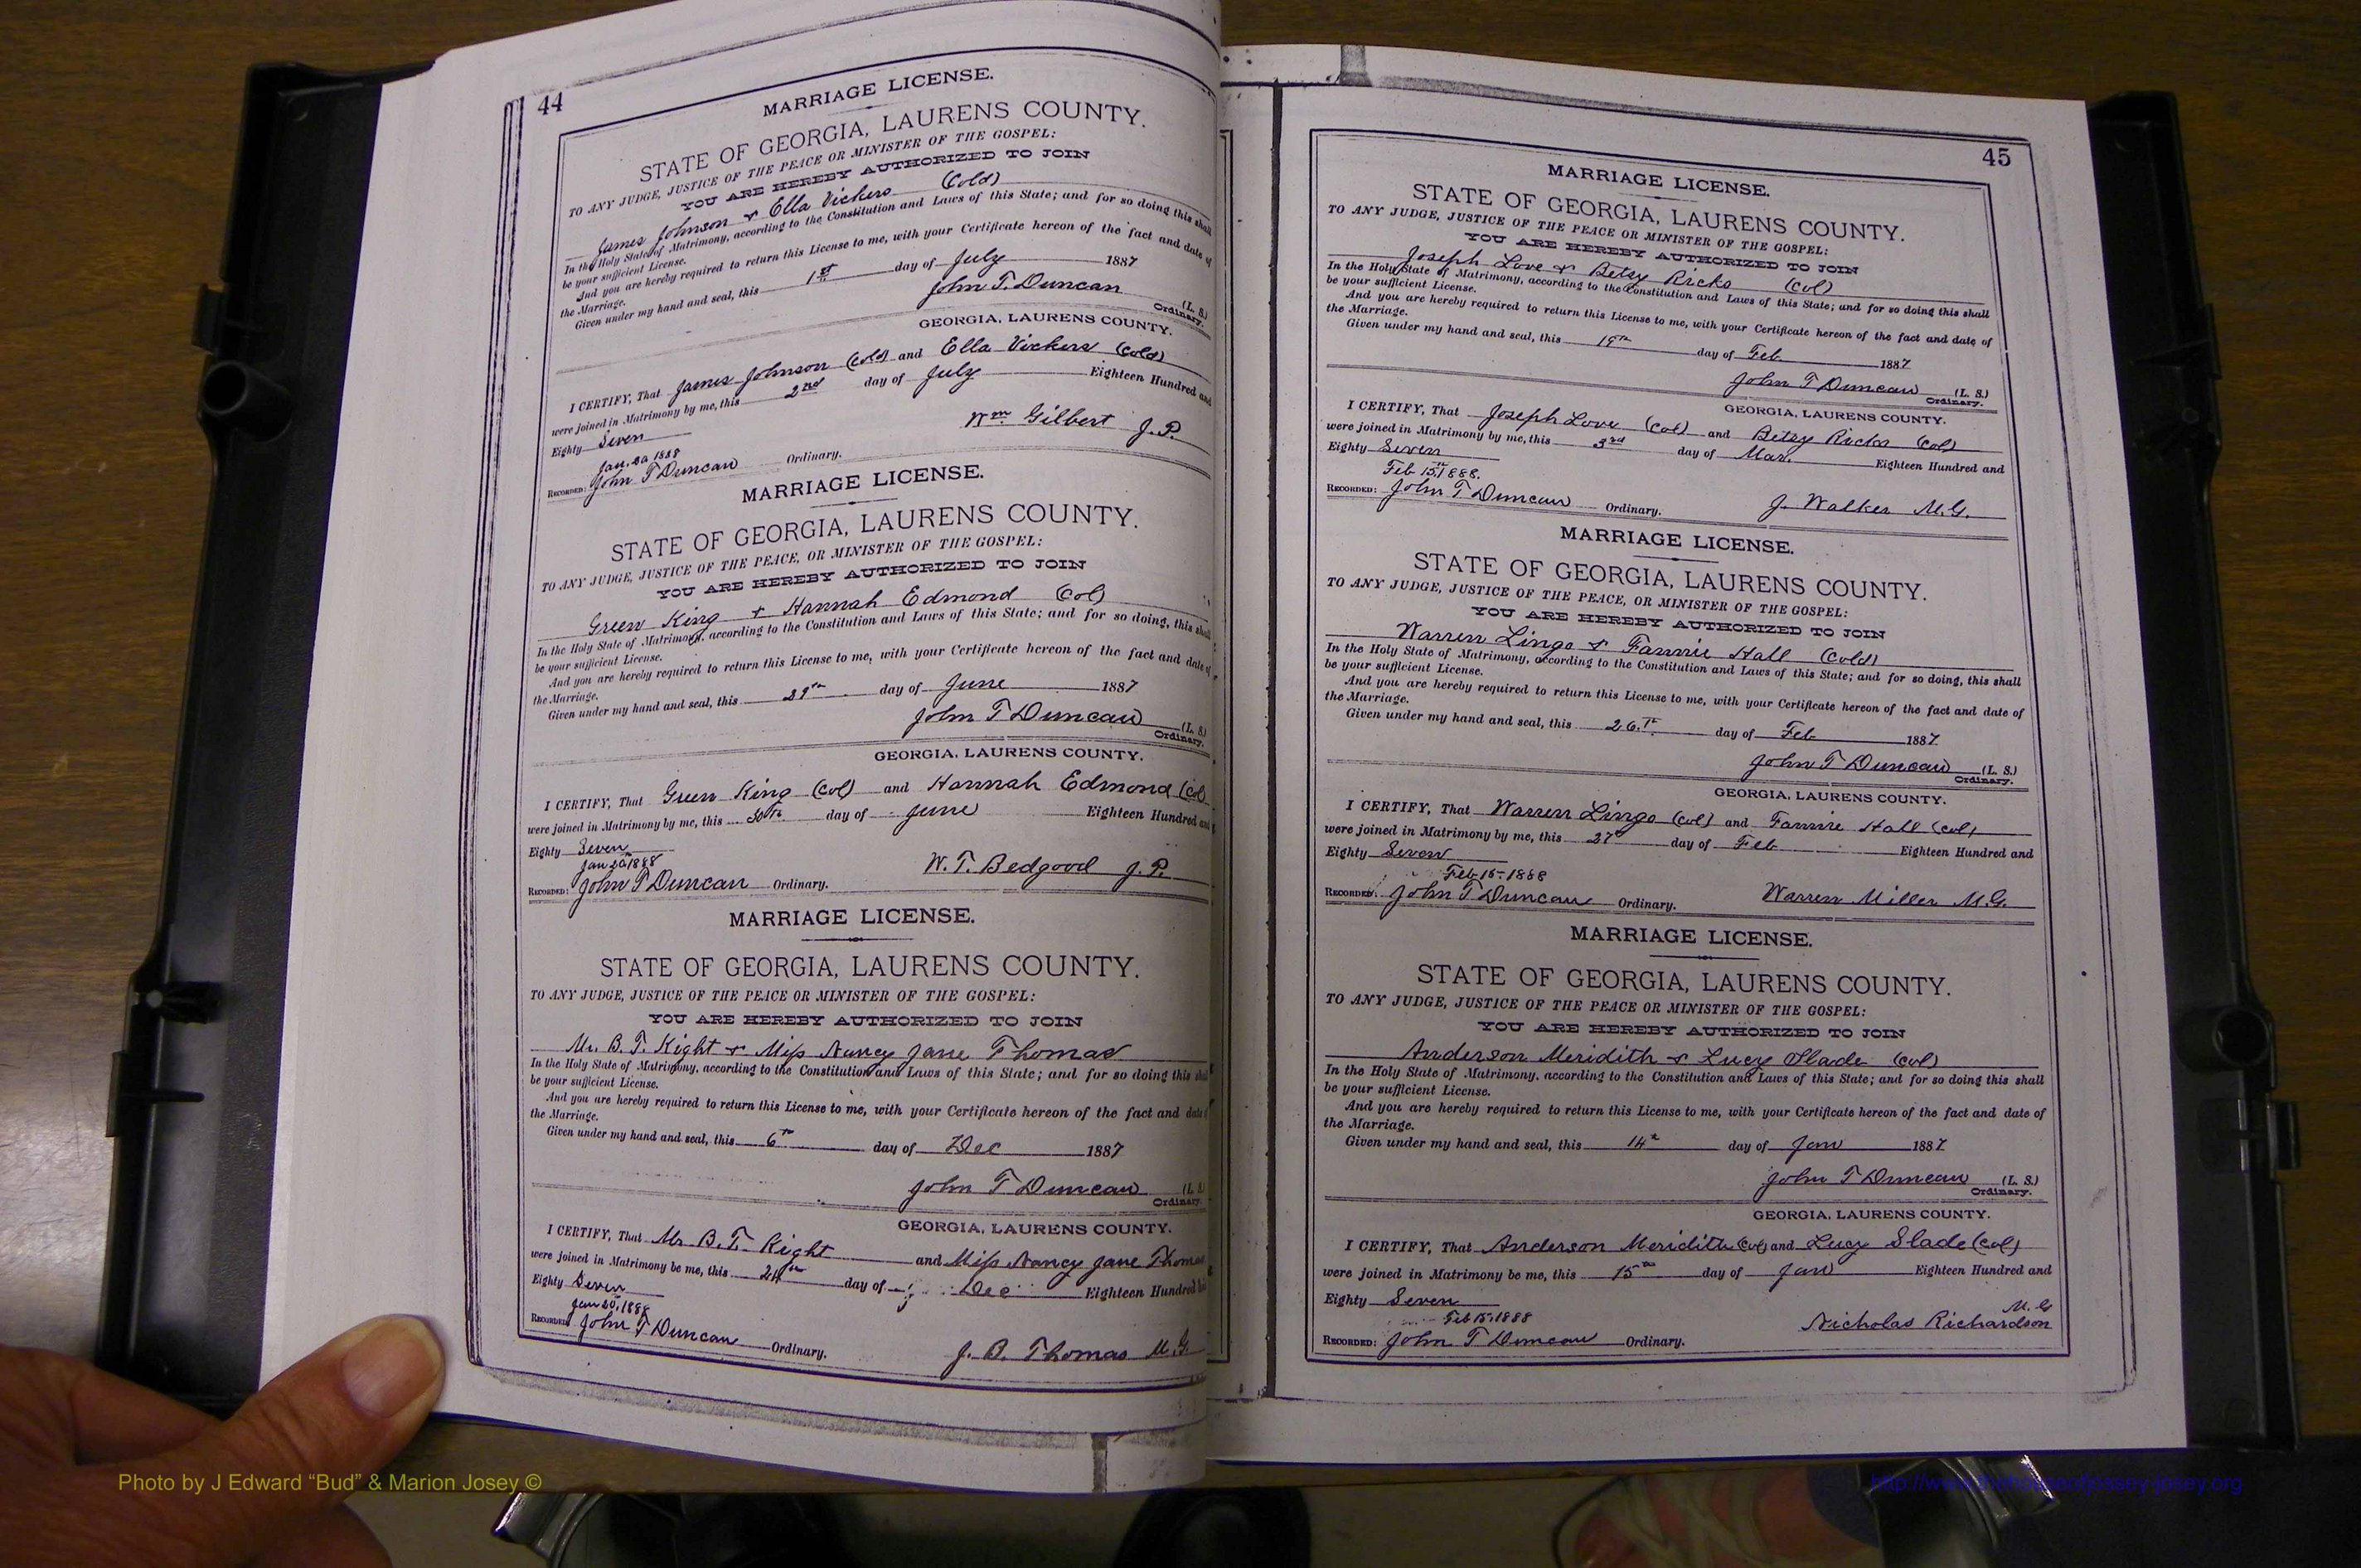 44
MARRIAGE LICENSE.
STATE OF GEORGIA, LAURENS COUNTY.
TO ANY JUDGE, JUSTICE OF THE PEACE OR MINISTER OF THE GOSPEL:
YOU ARE HEREBY AUTHORIZED TO JOIN
James Johnson & Ella Vickers (Cold)
In the Holy State of Matrimony, according to the Constitution and Laws of this State; and for so doing this shall
be your sufficient License.
And you are hereby required to return this License to me, with your Certificate hereon of the fact and date of
the Marriage.
Given under my hand and seal, this 1st day of July 1887
John T. Duncan (L. S.)
Ordinary.
GEORGIA, LAURENS COUNTY.
I CERTIFY, That James Johnson (Cold) and Ella Vickers (Cold)
were joined in Matrimony by me, this 2nd day of July Eighteen Hundred and
Eighty Seven
Wm. Gilbert J. P.
Jan. 20 1888
RECORDED: John T Duncan Ordinary.
MARRIAGE LICENSE.
STATE OF GEORGIA, LAURENS COUNTY.
TO ANY JUDGE, JUSTICE OF THE PEACE, OR MINISTER OF THE GOSPEL:
YOU ARE HEREBY AUTHORIZED TO JOIN
Green King + Hannah Edmond (Col)
In the Holy State of Matrimony, according to the Constitution and Laws of this State; and for so doing, this shall
be your sufficient License.
And you are hereby required to return this License to me, with your Certificate hereon of the fact and date of
the Marriage.
Given under my hand and seal, this 29th day of June 1887
John T Duncan (L. S.)
Ordinary.
GEORGIA, LAURENS COUNTY.
I CERTIFY, That Green King (Col) and Hannah Edmond (Col)
were joined in Matrimony by me, this 30th day of June Eighteen Hundred and
Eighty Seven
Jan 20 1888
W. T. Bedgood J. P.
RECORDED: John T Duncan Ordinary.
MARRIAGE LICENSE.
STATE OF GEORGIA, LAURENS COUNTY.
TO ANY JUDGE, JUSTICE OF THE PEACE OR MINISTER OF THE GOSPEL:
YOU ARE HEREBY AUTHORIZED TO JOIN
Mr. B. T. Kight & Miss Nancy Jane Thomas
In the Holy State of Matrimony, according to the Constitution and Laws of this State; and for so doing this shall
be your sufficient License.
And you are hereby required to return this License to me, with your Certificate hereon of the fact and date
the Marriage.
Given under my hand and seal, this 6th day of Dec 1887
John T Duncan (L. S.
Ordinary.
GEORGIA, LAURENS COUNTY.
I CERTIFY, That Mr B. T. Kight and Miss Nancy Jane Thomas
were joined in Matrimony be me, this 24th day of Dec Eighteen Hundred
Eighty Seven
Jan 20, 1888
RECORDED John T Duncan Ordinary.
J. B. Thomas M. G.
45
MARRIAGE LICENSE.
STATE OF GEORGIA, LAURENS COUNTY.
TO ANY JUDGE, JUSTICE OF THE PEACE OR MINISTER OF THE GOSPEL:
YOU ARE HEREBY AUTHORIZED TO JOIN
Joseph Love & Betsy Ricks (Col)
In the Holy State of Matrimony, according to the Constitution and Laws of this State; and for so doing this shall
be your sufficient License.
And you are hereby required to return this License to me, with your Certificate hereon of the fact and date of
the Marriage.
Given under my hand and seal, this 19th day of Feb 1887
John T Duncan (L. S.)
Ordinary.
GEORGIA, LAURENS COUNTY.
I CERTIFY, That Joseph Love (Col) and Betsy Ricks (Col)
were joined in Matrimony by me, this 3rd day of Mar. Eighteen Hundred and
Eighty Seven
Feb 15th 1888.
RECORDED: John T Duncan Ordinary. J. Walker M. G.
MARRIAGE LICENSE.
STATE OF GEORGIA, LAURENS COUNTY.
TO ANY JUDGE, JUSTICE OF THE PEACE, OR MINISTER OF THE GOSPEL:
YOU ARE HEREBY AUTHORIZED TO JOIN
Warren Lingo & Fannie Hall (Cold)
In the Holy State of Matrimony, according to the Constitution and Laws of this State; and for so doing, this shall
be your sufficient License.
And you are hereby required to return this License to me, with your Certificate hereon of the fact and date of
the Marriage.
Given under my hand and seal, this 26.th day of Feb 1887
John T Duncan (L. S.)
Ordinary.
GEORGIA, LAURENS COUNTY.
I CERTIFY, That Warren Lingo (Col) and Fannie Hall (Col)
were joined in Matrimony by me, this 27th day of Feb Eighteen Hundred and
Eighty Seven
Feb 15. 1888
RECORDED: John T Duncan Ordinary. Warren Miller M. G.
MARRIAGE LICENSE.
STATE OF GEORGIA, LAURENS COUNTY.
TO ANY JUDGE, JUSTICE OF THE PEACE OR MINISTER OF THE GOSPEL:
YOU ARE HEREBY AUTHORIZED TO JOIN
Anderson Meridith & Lucy Slade (Col)
In the Holy State of Matrimony, according to the Constitution and Laws of this State; and for so doing this shall
be your sufficient License.
And you are hereby required to return this License to me, with your Certificate hereon of the fact and date of
the Marriage.
Given under my hand and seal, this 14th day of Jan 1887
John T Duncan (L. S.)
Ordinary.
GEORGIA, LAURENS COUNTY.
I CERTIFY, That Anderson Meridith (Col) and Lucy Slade (Col)
were joined in Matrimony be me, this 15th day of Jan Eighteen Hundred and
Eighty Seven
M. G
Feb 15. 1888
Nicholas Richardson
RECORDED: John T Duncan Ordinary.
Photo by J Edward “Bud” & Marion Josey ©